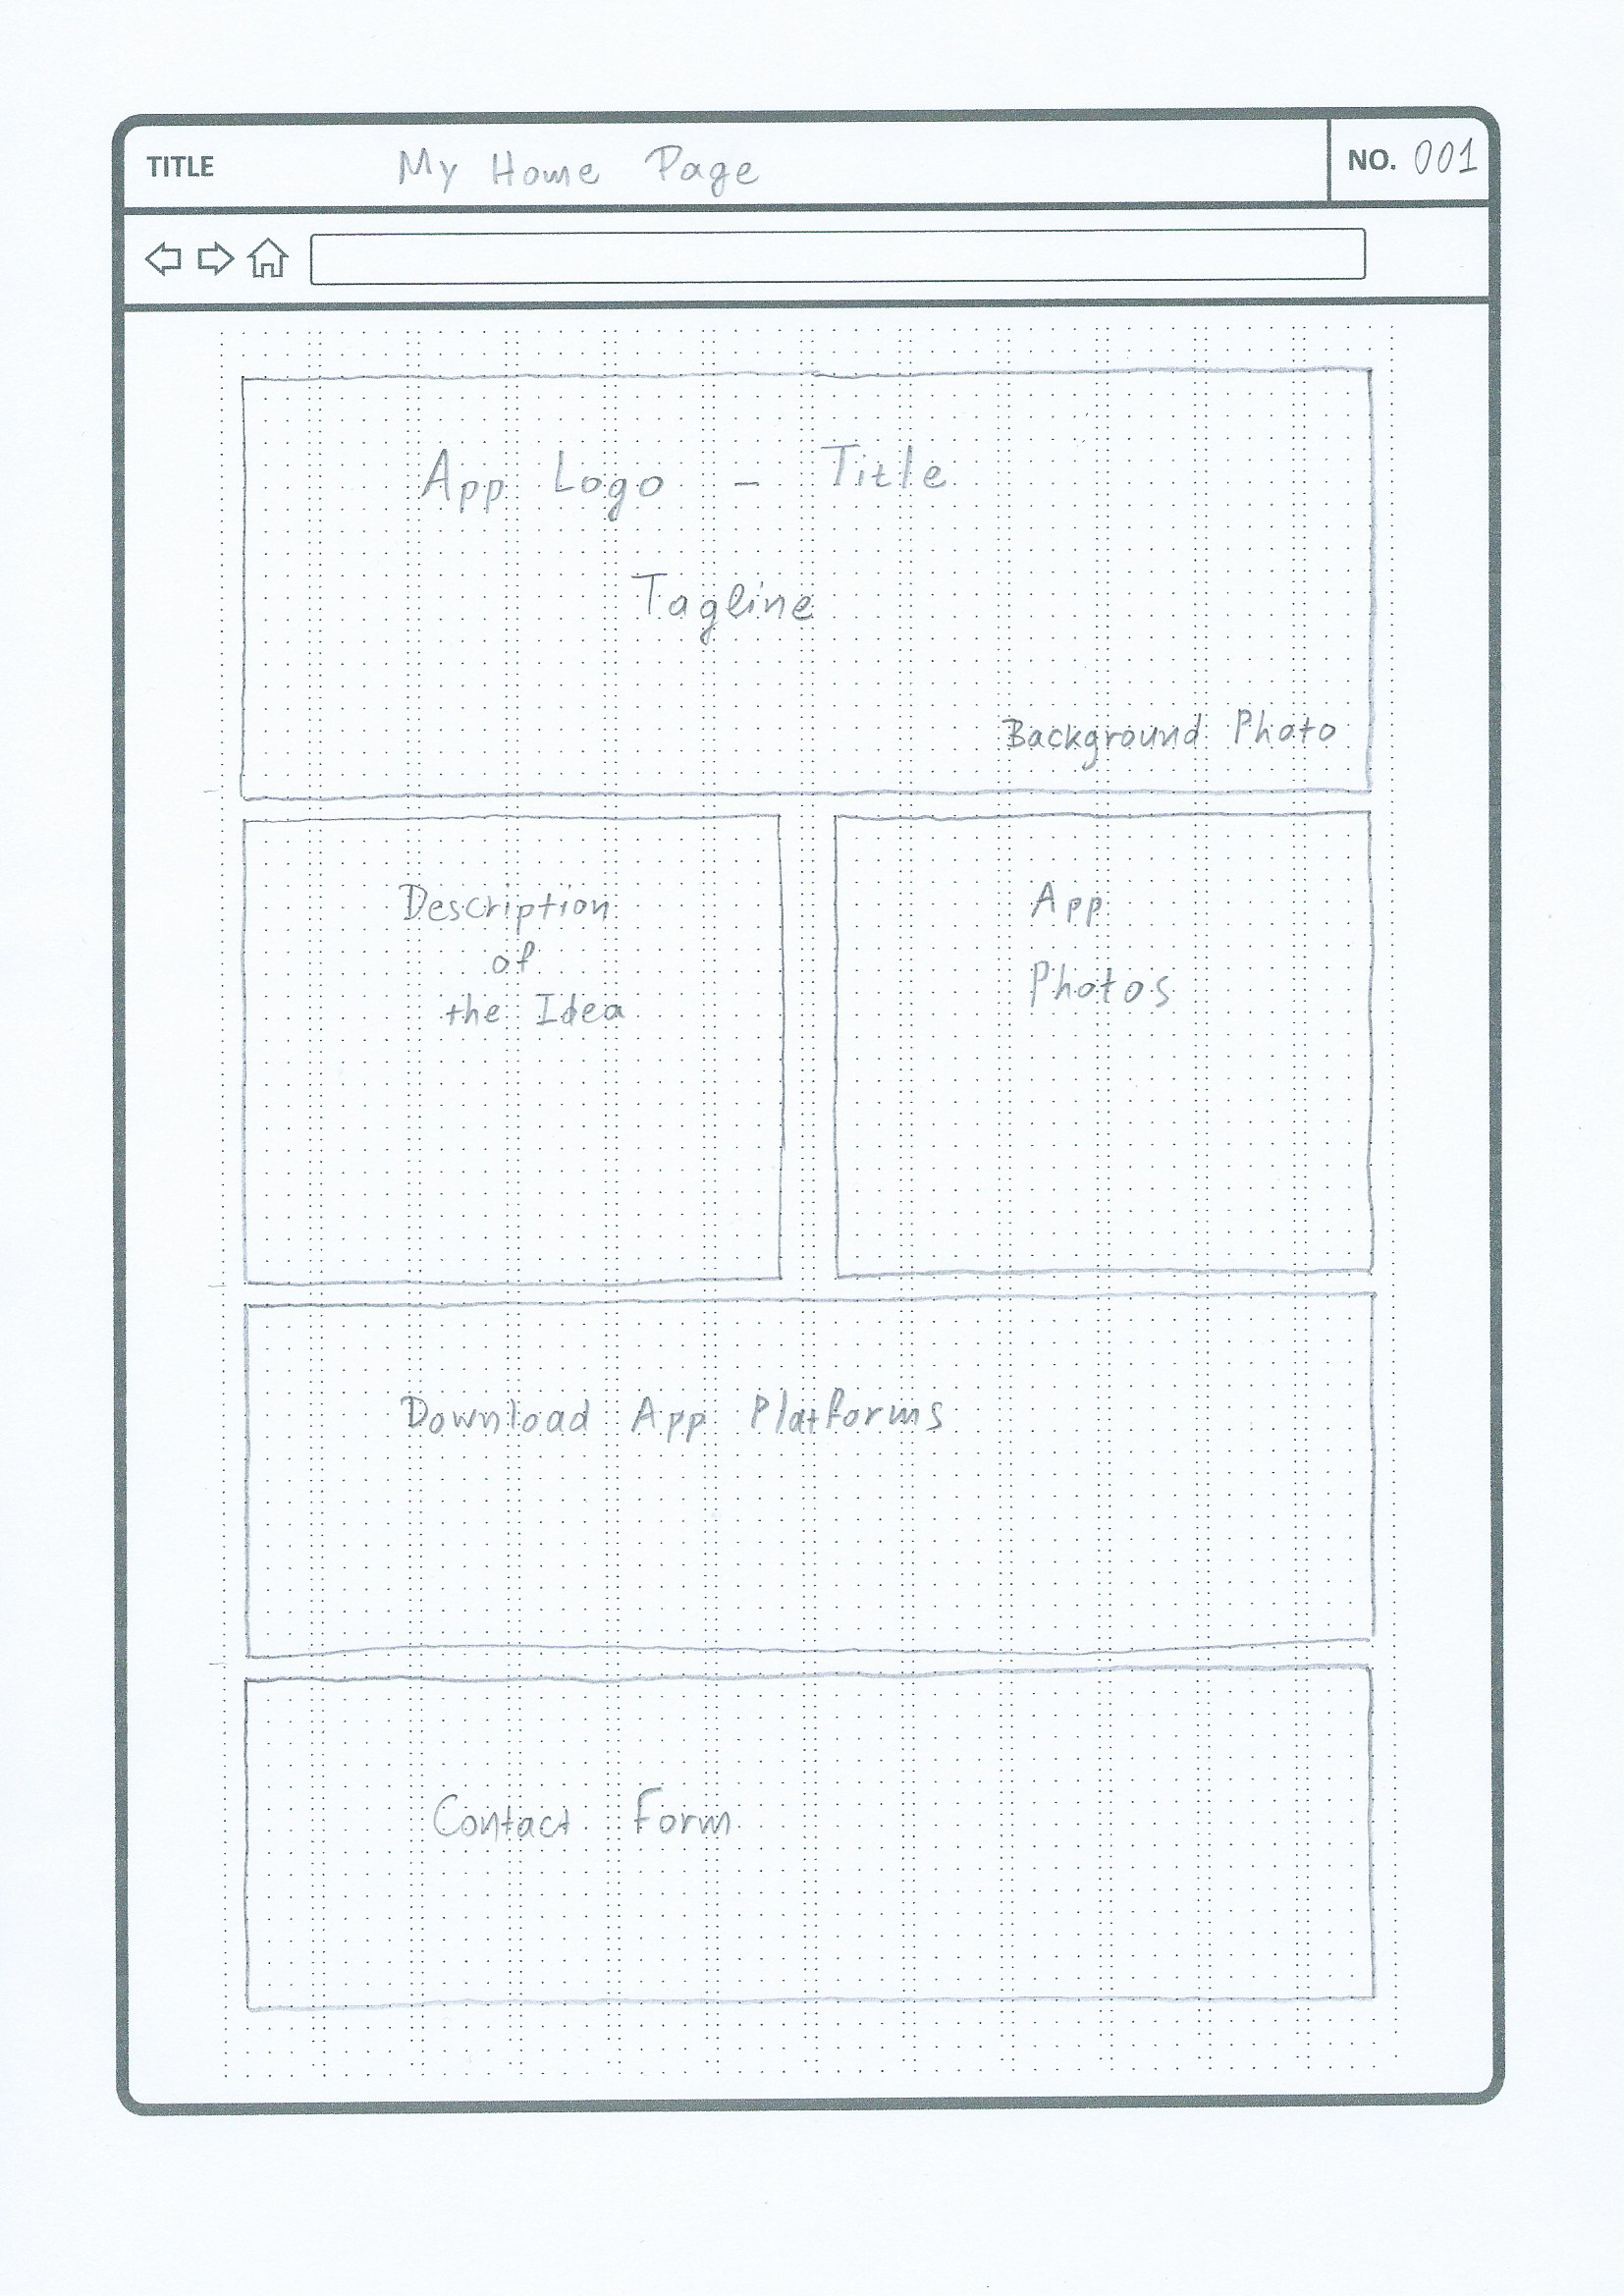 TITLE My Home Page NO. 001
App Logo - Title
Tagline
Background Photo
Description
of
the Idea
App
Photos
Download App Platforms
Contact Form